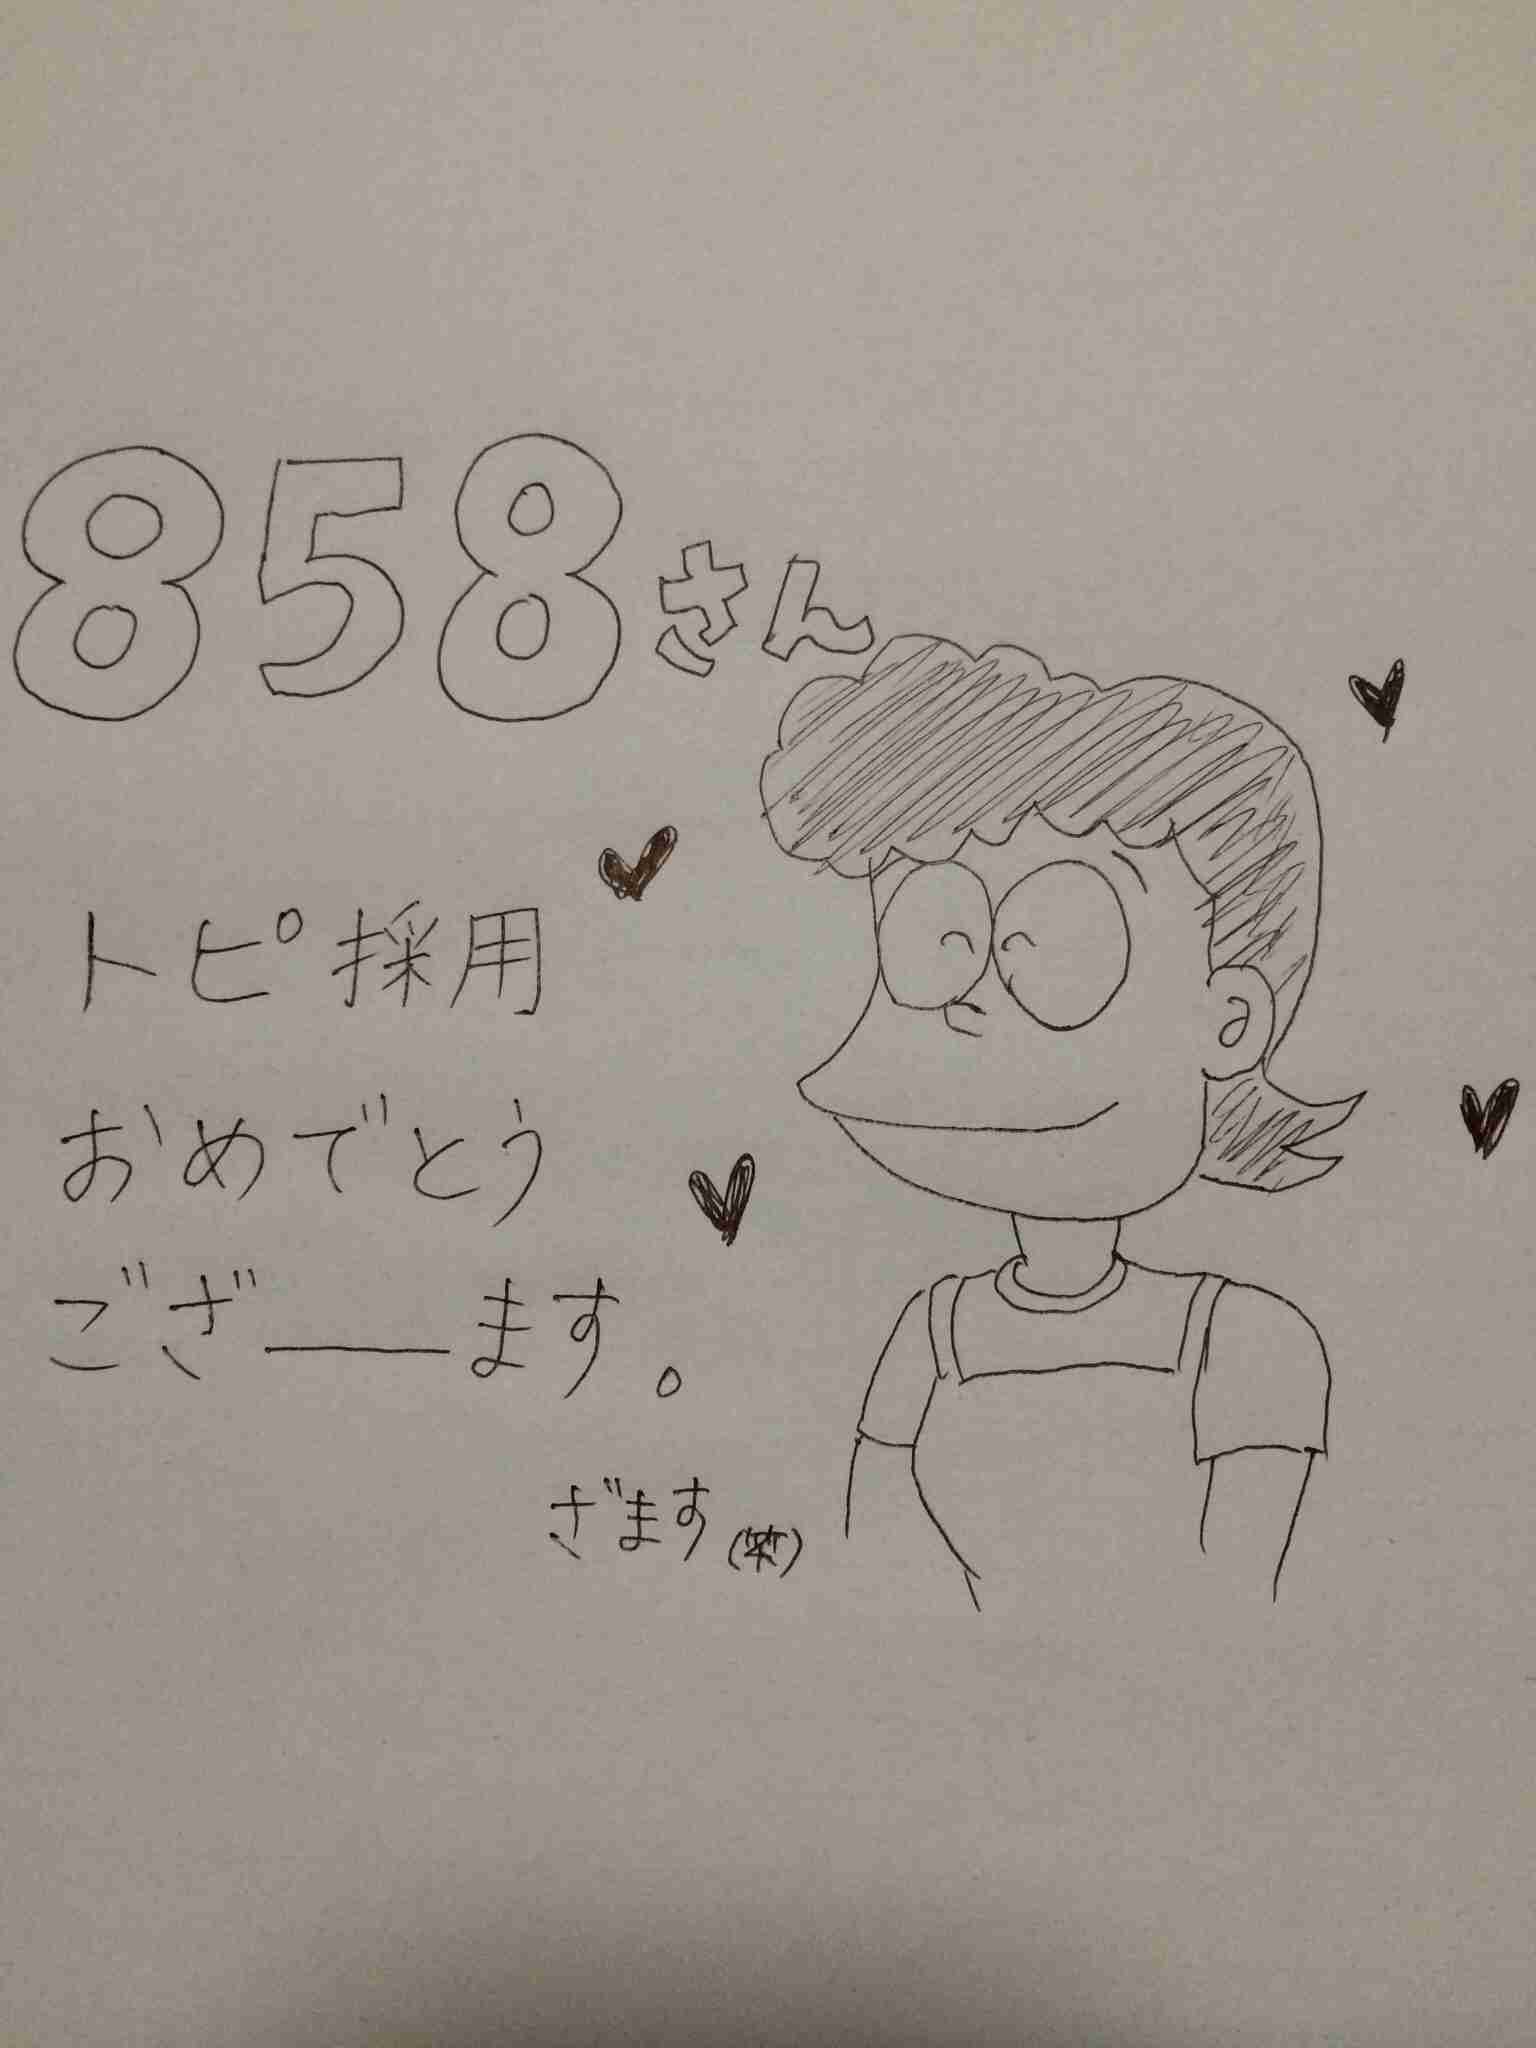 858さん
トピ採用
おめでとう
ござーます。
ざます(笑)